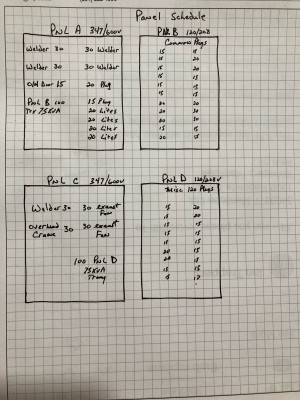 Panel Schedule
PNL A 347/600V
Welder 30 30 Welder
Welder 30 30 Welder
Door 15 20 Plug
PNL B 100 15 Plug
75KVA 20 Lites
20 Lites
20 Lites
20 Lites
PNL B 120/208
Common Plugs
15 15
15 20
15 20
15 15
15 15
15 20
20 20
20 30
15 15
20 15
PNL C 347/600V
Welder 30 30 exaust
Fan
Overhead 30 30 exaust
Crane Fan
100 PNL D
75KVA
PNL D 120/208V
120 Plugs
15 20
15 20
15 15
15 15
15 15
20 15
20 15
15 15
15